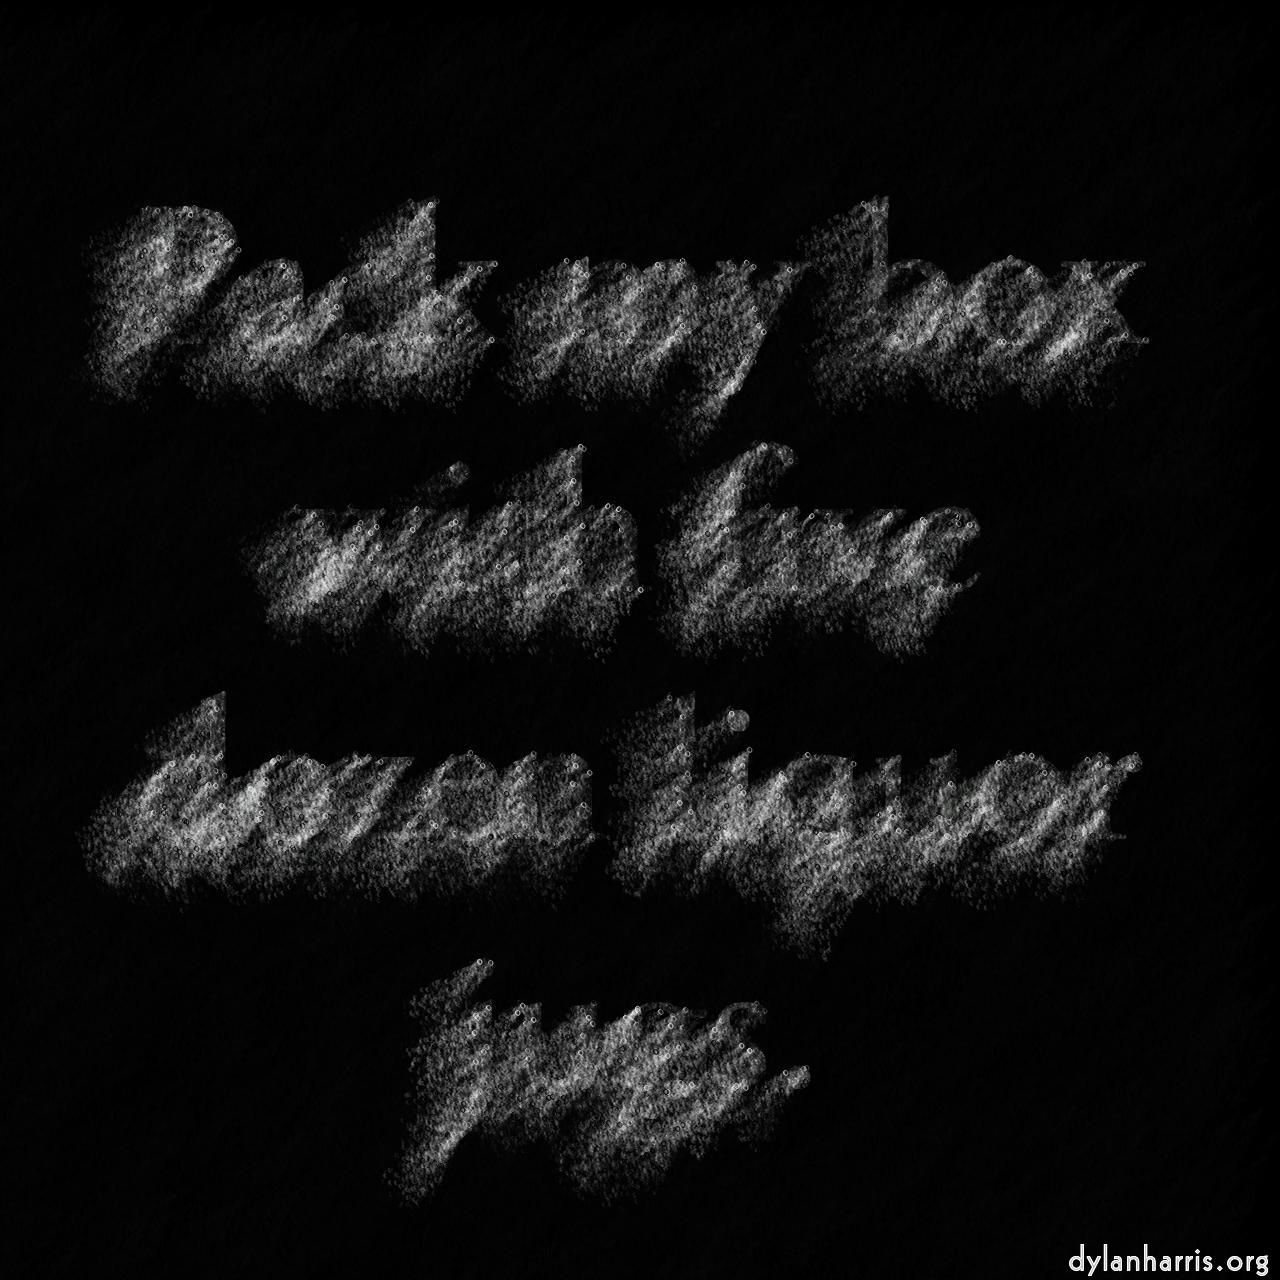 Pack my box
with five
dozen liquor
jugs.
dylanharris.org